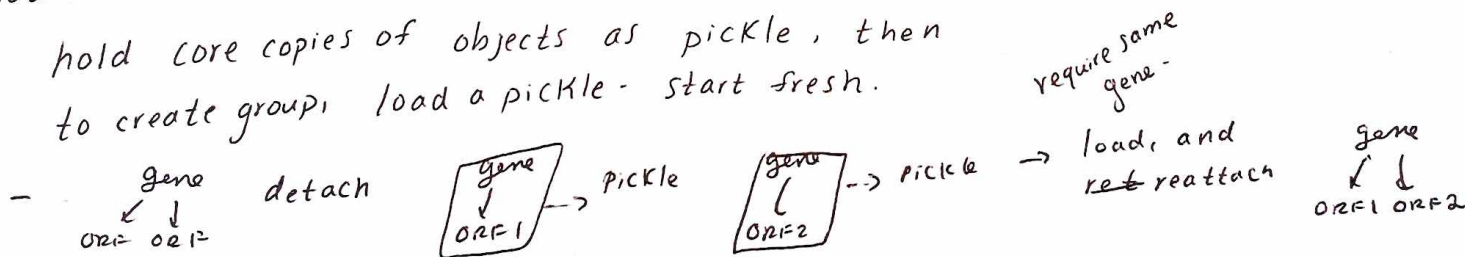 hold core copies of objects as pickle, then
to create group, load a pickle - start fresh.
require same
gene -
- gene
ORF ORF
detach
gene
ORF1
Pickle
gene
ORF2
Pickle
load, and
ret reattach
gene
ORF1 ORF2